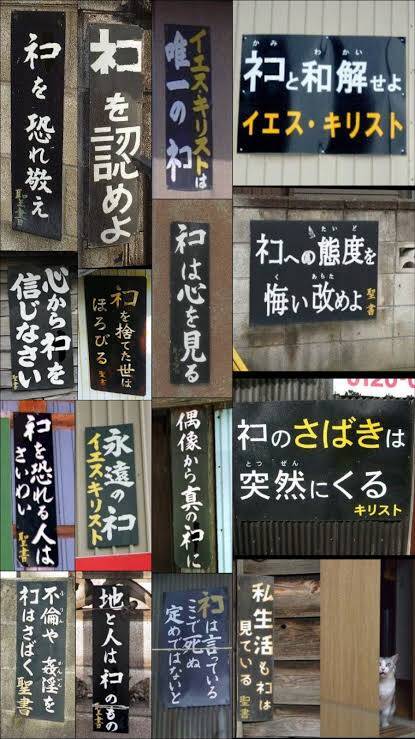 ネコを恐れ敬え
聖書
ネコを認めよ
イエス・キリストは
唯一のネコ
かみ わかい
ネコと和解せよ
イエス・キリスト
ネコは心を見る
たいど
ネコへの態度を
く あらた
悔い改めよ 聖書
心からネコを
信じなさい
ネコを捨てた世は
ほろびる 聖書
ネコを恐れる人は
さいわい 聖書
永遠のネコ
イエス・キリスト
偶像から真のネコに
0120-0
ネコのさばきは
とつぜん
突然にくる
キリスト
不倫や姦淫を
ネコはさばく 聖書
地と人はネコのもの
聖書
ネコは言っている
ここで死ぬ
定めではないと
私生活もネコは
見ている 聖書